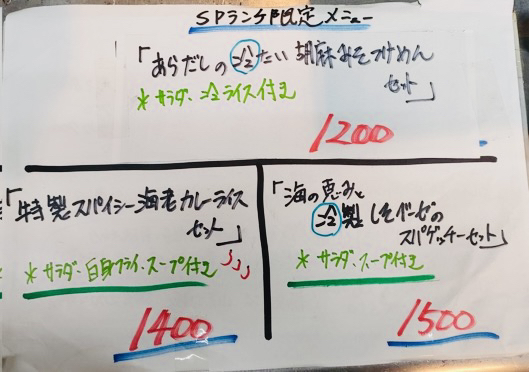 SPランチ限定メニュー
「あらだしの冷たい胡麻みそつけめん
セット」
*サラダ・冷ライス付き
1200
「特製スパイシー海老カレーライス
セット」
*サラダ・白身フライ・スープ付き
1400
「海の恵みと
冷製しそベーゼの
スパゲッチーセット」
*サラダ、スープ付き
1500